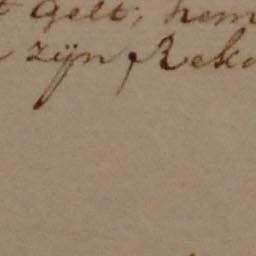 Gelt; hem
zijn Reke